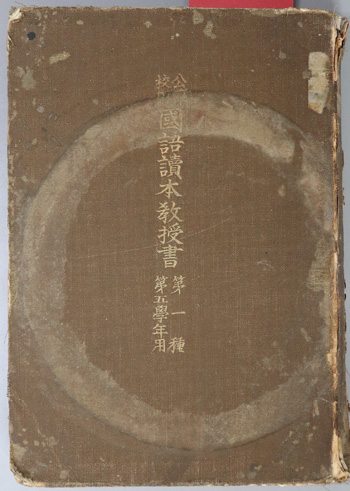 公學校用
國語讀本教授書
第一種
第五學年用